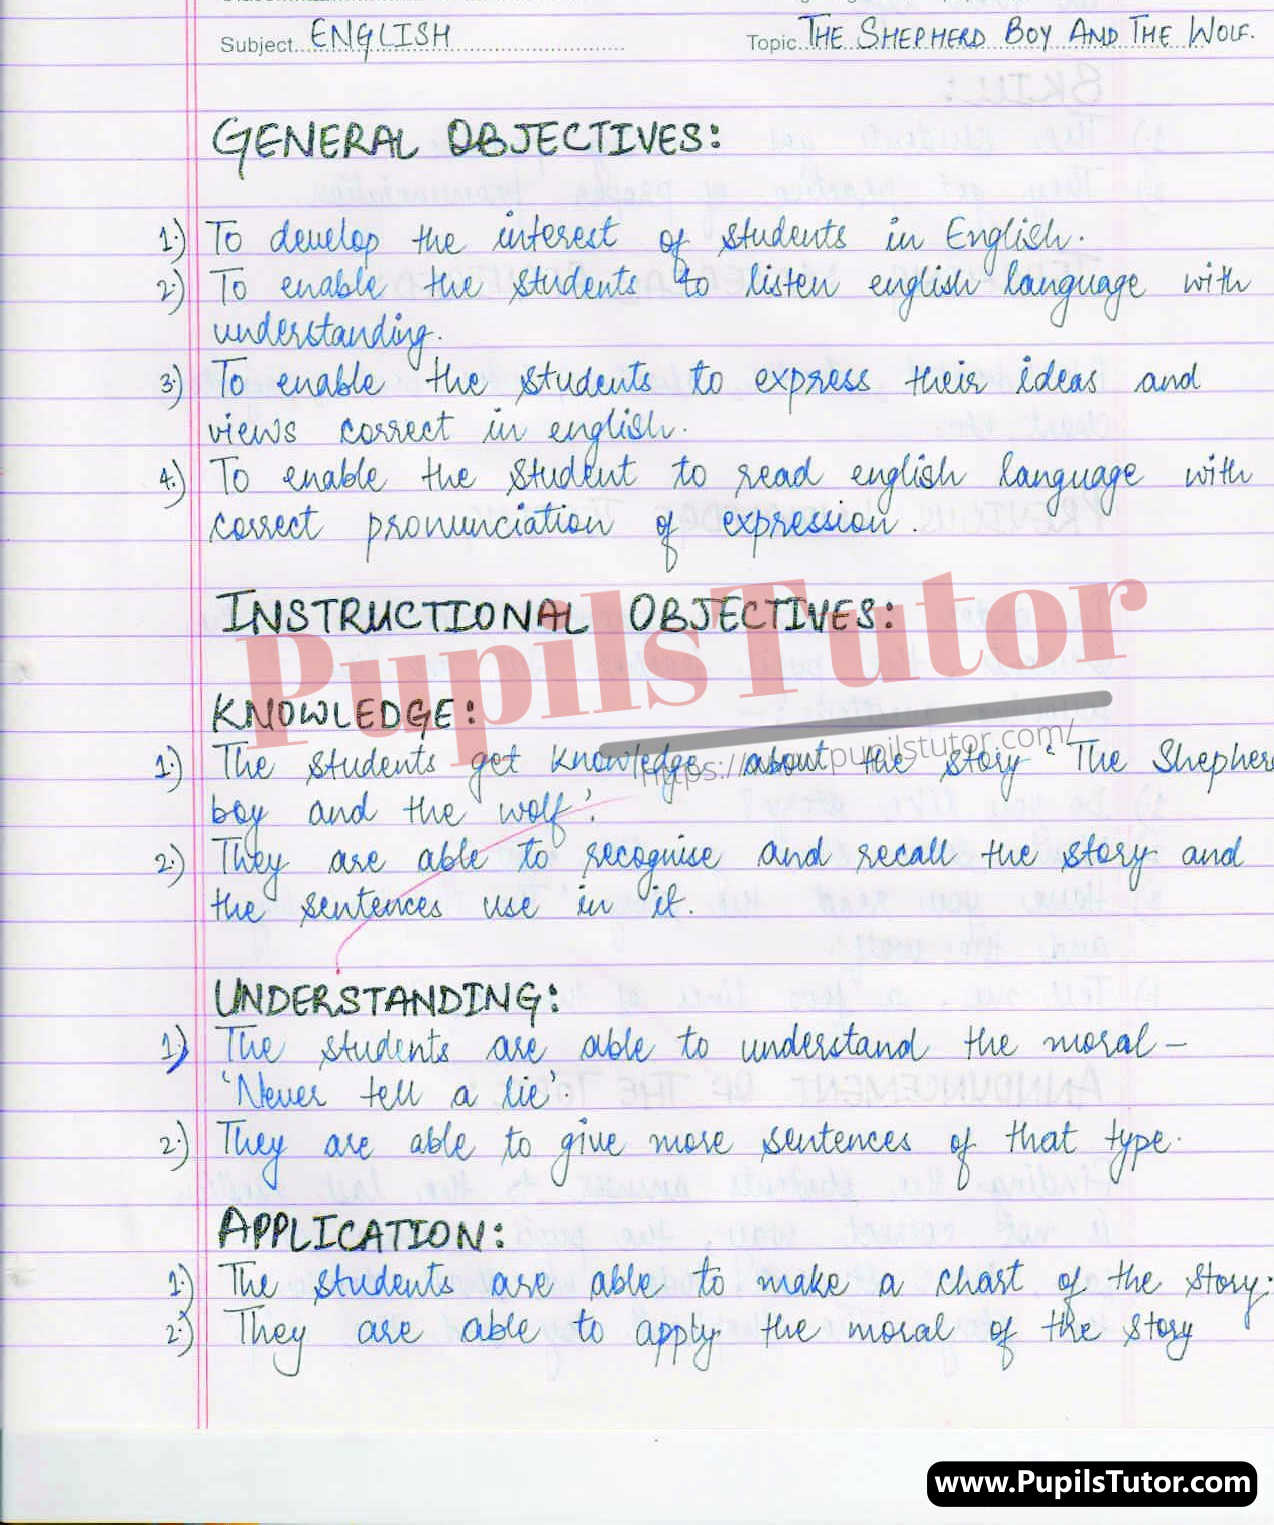 Subject ENGLISH Topic THE SHEPHERD BOY AND THE WOLF.
GENERAL OBJECTIVES:
1.) To develop the interest of students in English.
2.) To enable the students to listen english language with
understanding.
3.) To enable the students to express their ideas and
views correct in english.
4.) To enable the student to read english language with
correct pronunciation of expression.
INSTRUCTIONAL OBJECTIVES:
Pupils Tutor
KNOWLEDGE:
https://www.pupilstutor.com/
1.) The students get knowledge about the story 'The Shepher
boy and the wolf'.
2.) They are able to recognise and recall the story and
the sentences use in it.
UNDERSTANDING:
1.) The students are able to understand the moral –
'Never tell a lie'.
2.) They are able to give more sentences of that type.
APPLICATION:
1.) The students are able to make a chart of the story.
2.) They are able to apply the moral of the story
www.PupilsTutor.com